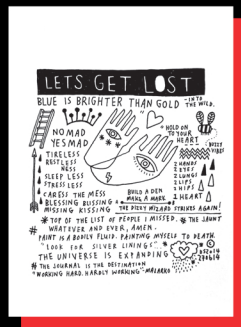 LETS GET LOST
BLUE IS BRIGHTER THAN GOLD
-INTO
THE WILD.
NOMAD
YESMAD
TIRELESS
RESTLESS
NESS
SLEEPLESS
STRESSLESS
CARESS THE MESS
BLESSING BUSSING &
MISSING KISSING
HOLD ON
TO YOUR
HEART
BUZZY
VIBES
2 HANDS
2 EYES
2 LUNGS
2 LIPS
2 HIPS
1 HEART
BUILD A DEN
MAKE A MARK
THE DIZZY WIZARD STRIKES AGAIN!
* TOP OF THE LIST OF PEOPLE I MISSED. * THE JAUNT
# WHATEVER AND EVER, AMEN.
PAINT IS A BODILY FLUID. PAINTING MYSELF TO DEATH.
"LOOK FOR SILVER LININGS".
THE UNIVERSE IS EXPANDING
# THE JOURNAL IS THE DESTINATION
"WORKING HARD. HARDLY WORKING" - MALARKO